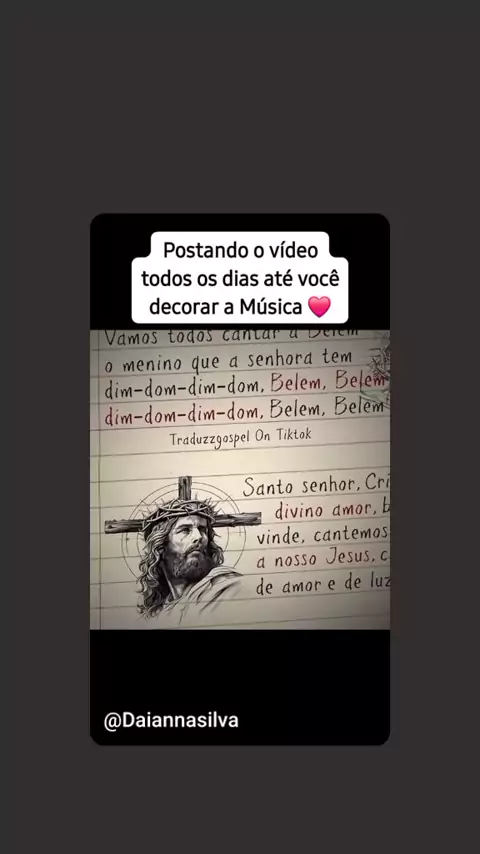 Postando o vídeo
todos os dias até você
decorar a Música
Vamos todos cantar a Belém
o menino que a senhora tem
dim-dom-dim-dom, Belem, Belem
dim-dom-dim-dom, Belem, Belem
Traduzzgospel On Tiktok
Santo senhor, Cri
divino amor, b
vinde, cantemos
a nosso Jesus, c
de amor e de luz
@Daiannasilva